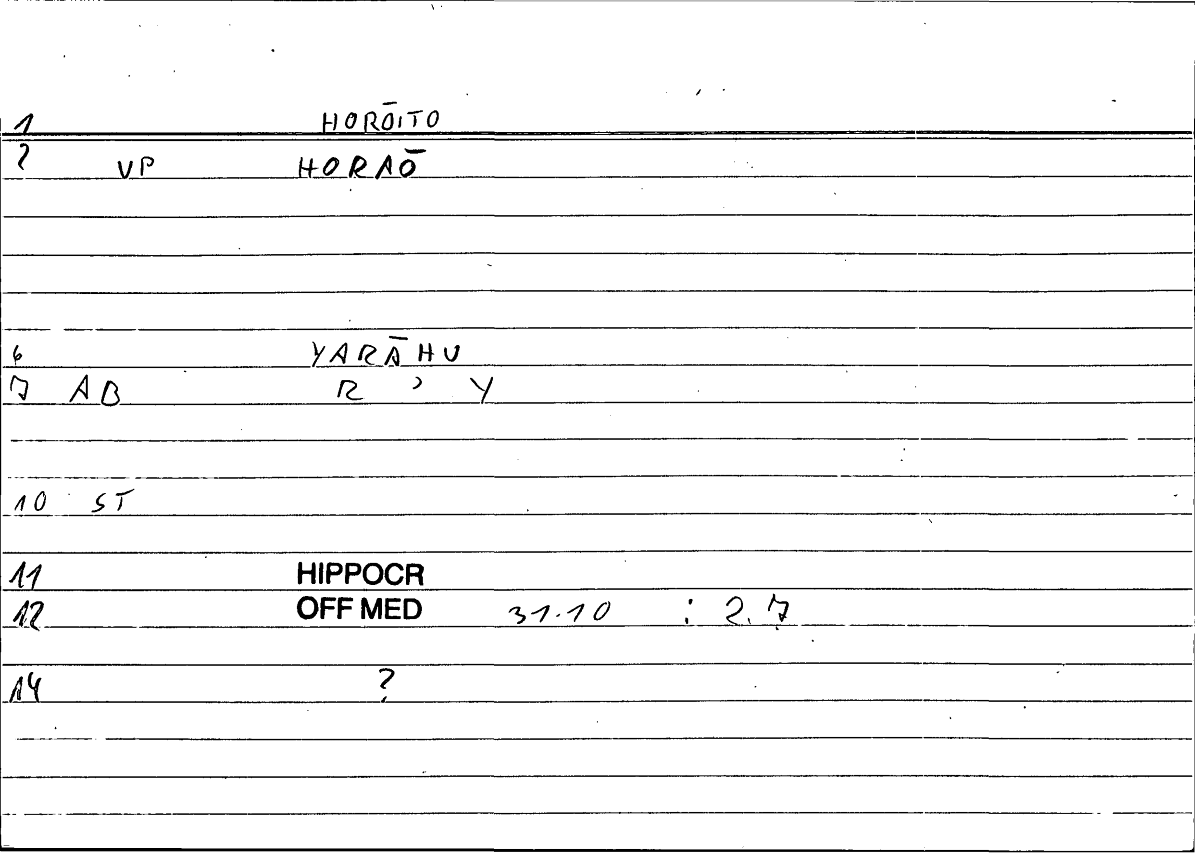 1 HORŌITO
2 VP HORAŌ
6 YARĀHU
7 AB R ʾ Y
10 ST
11 HIPPOCR
12 OFF MED 31.10 : 2.7
14 ?